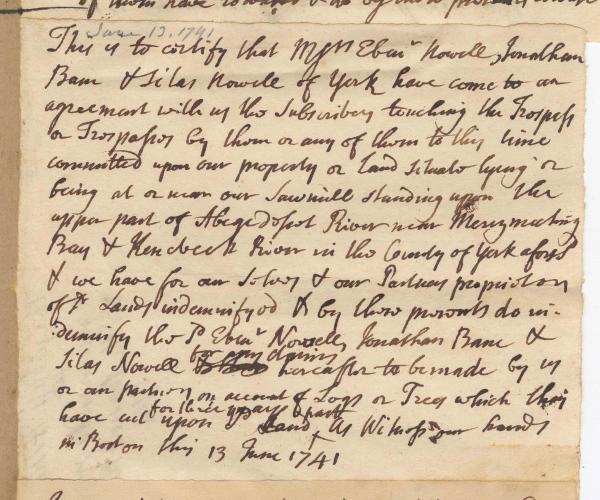 of them have
June 13, 1741
This is to certify that Mess.rs Eben.r Nowell, Jonathan
Bane & Silas Nowell of York have come to an
agreement with us the Subscribers touching the Trespass
or Trespasses by them or any of them to this time
committed upon our property or Land situate lying or
being at or near our Sawmill standing upon the
upper part of Abegedosset River near Merrymeeting
Bay & Kenebeck River in the County of York afores.d
& we have for our Selves & our Partners proprietors
of s.d Lands indemnifyed & by these presents do in-
demnify the s.d Eben.r Nowell, Jonathan Bane &
Silas Nowell by any claims hereafter to be made by us
or our partners on account of Logs or Trees which they
have cut upon for three years past Land, As Witness our hands
in Boston this 13 June 1741